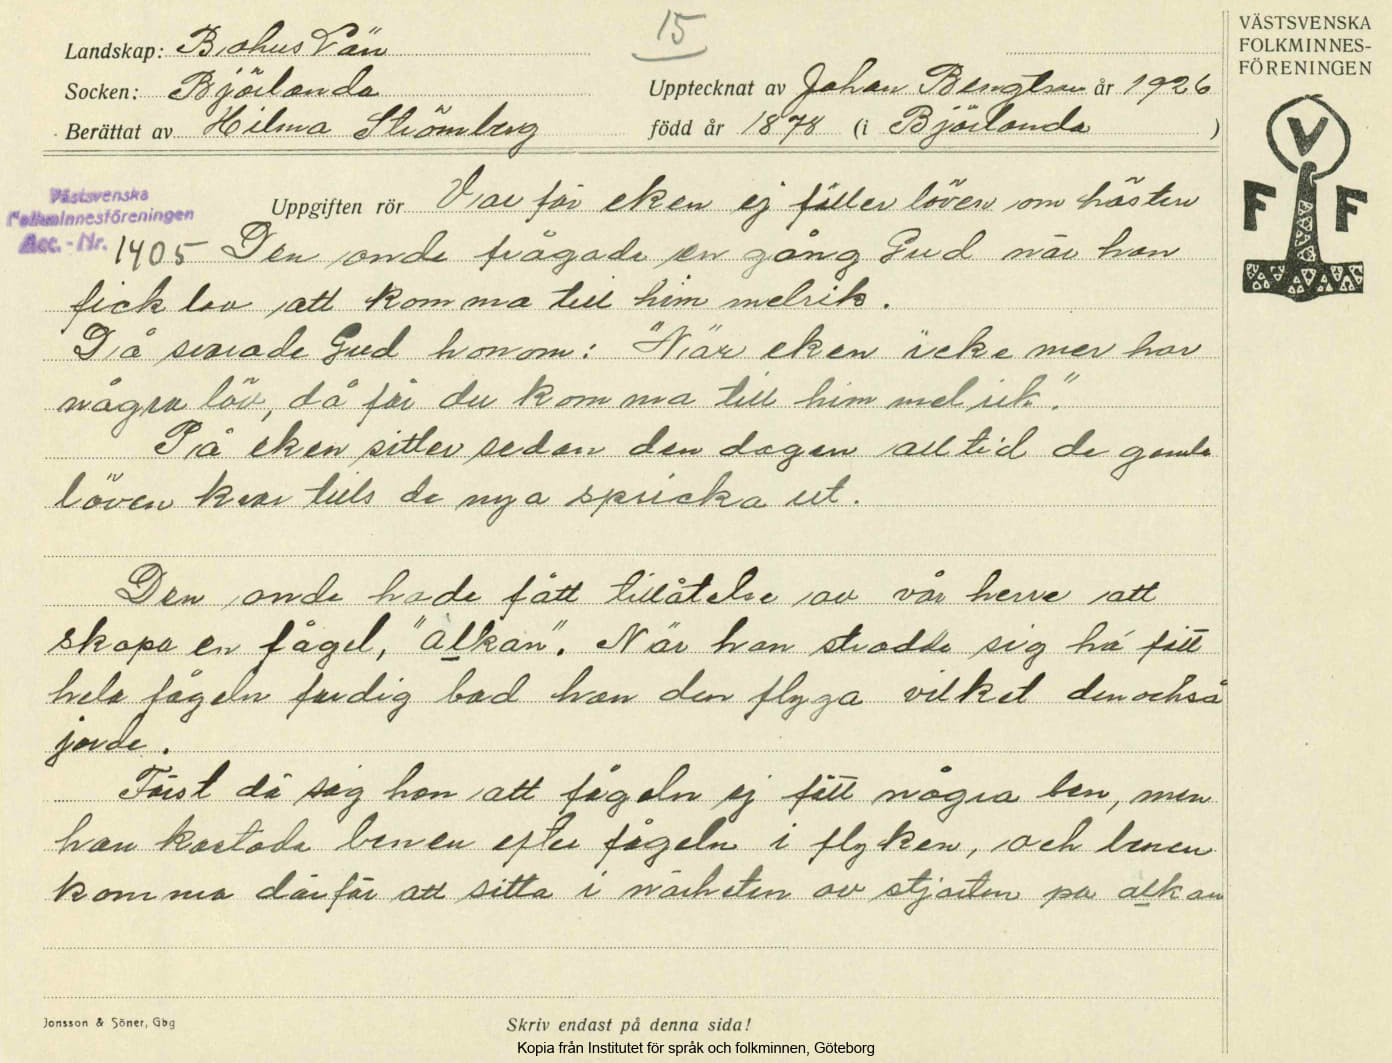 15
Landskap: Bohuslän
Socken: Björlanda
Upptecknat av Johan Bengtson år 1926
Berättat av Hilma Strömberg
född år 1878 (i Björlanda )
VÄSTSVENSKA
FOLKMINNES-
FÖRENINGEN
V
F F
Västsvenska
Folkminnesföreningen
Acc. - Nr. 1405
Uppgiften rör Varför eken ej fäller löven om hösten
Den onde frågade en gång Gud när han
fick lov att komma till himmelrik.
Då svarade Gud honom: "När eken icke mer har
några löv, då får du komma till himmelrik".
På eken sitter sedan den dagen alltid de gamla
löven kvar tills de nya spricka ut.
Den onde hade fått tillåtelse av vår herre att
skapa en fågel, "alkan". När han trodde sig ha fått
hela fågeln färdig bad han den flyga vilket den också
jorde.
Först då såg han att fågeln ej fått några ben, men
han kastade benen efter fågeln i flyken, och benen
komma därför att sitta i närheten av stjärten på alkan
Jonsson & Söner, Gbg
Skriv endast på denna sida!
Kopia från Institutet för språk och folkminnen, Göteborg